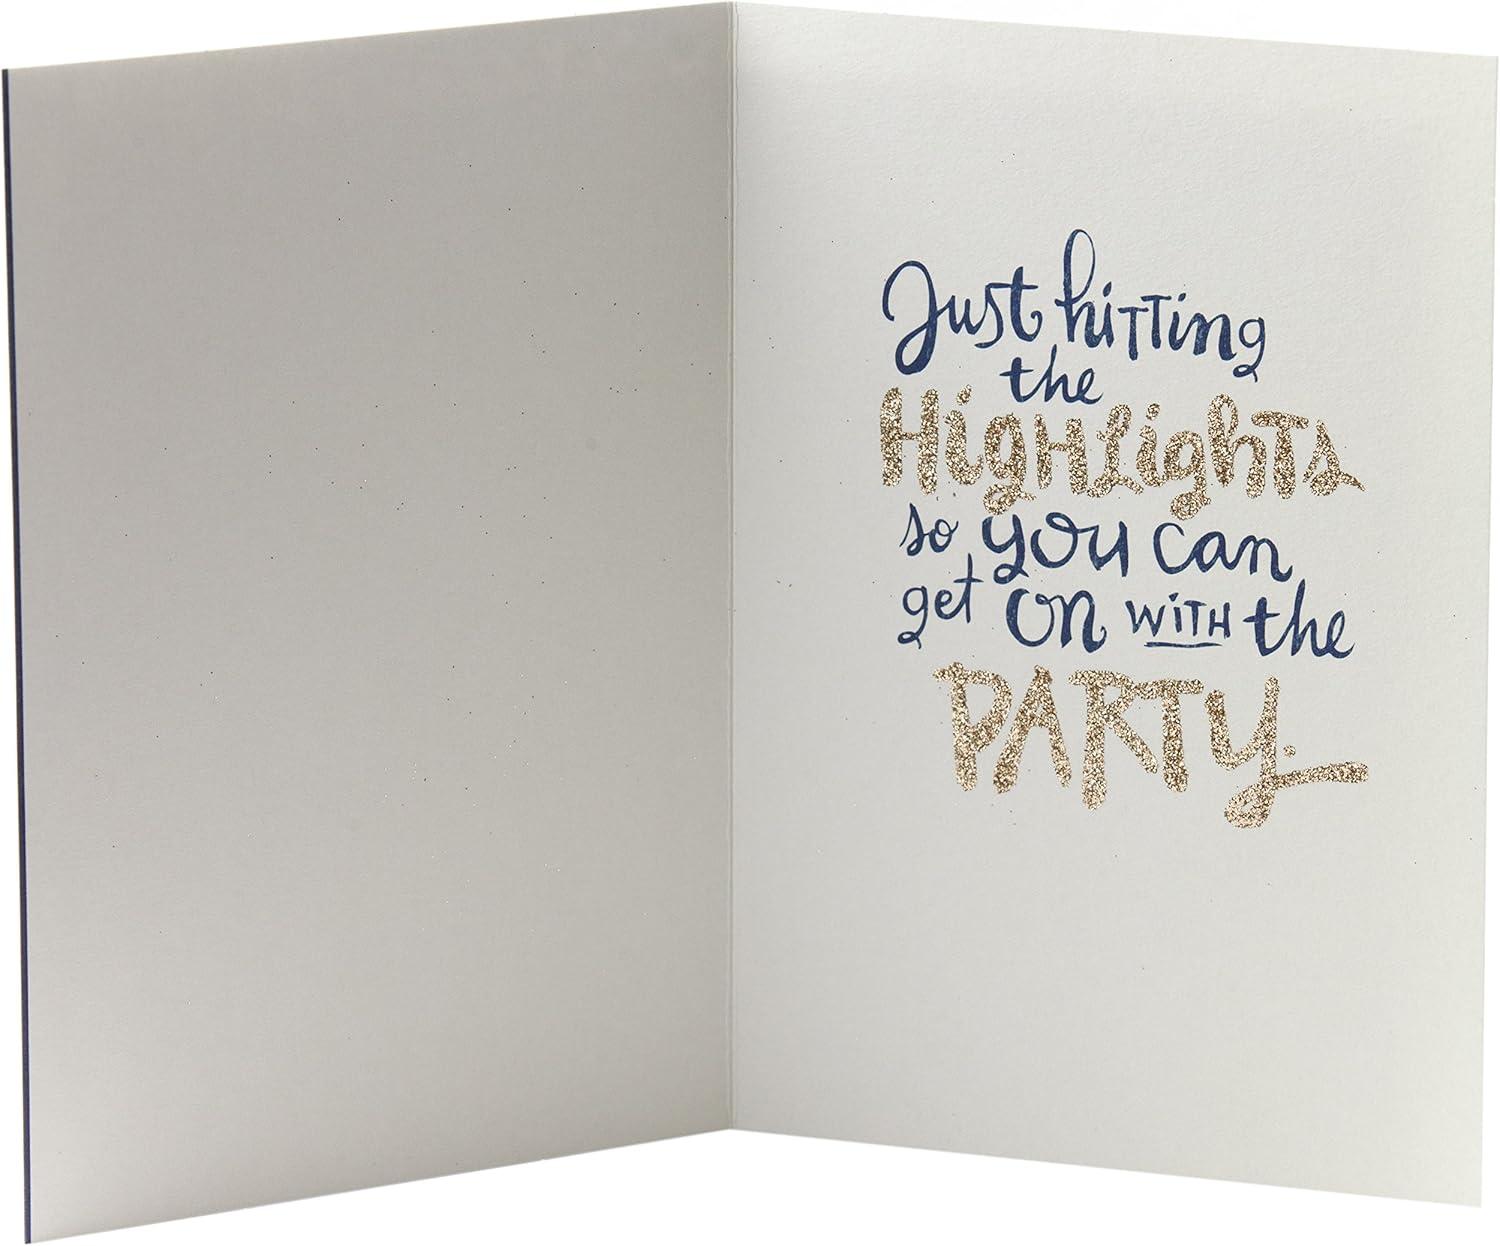 Just hitting
the
Highlights
so you can
get on with the
PARTY.